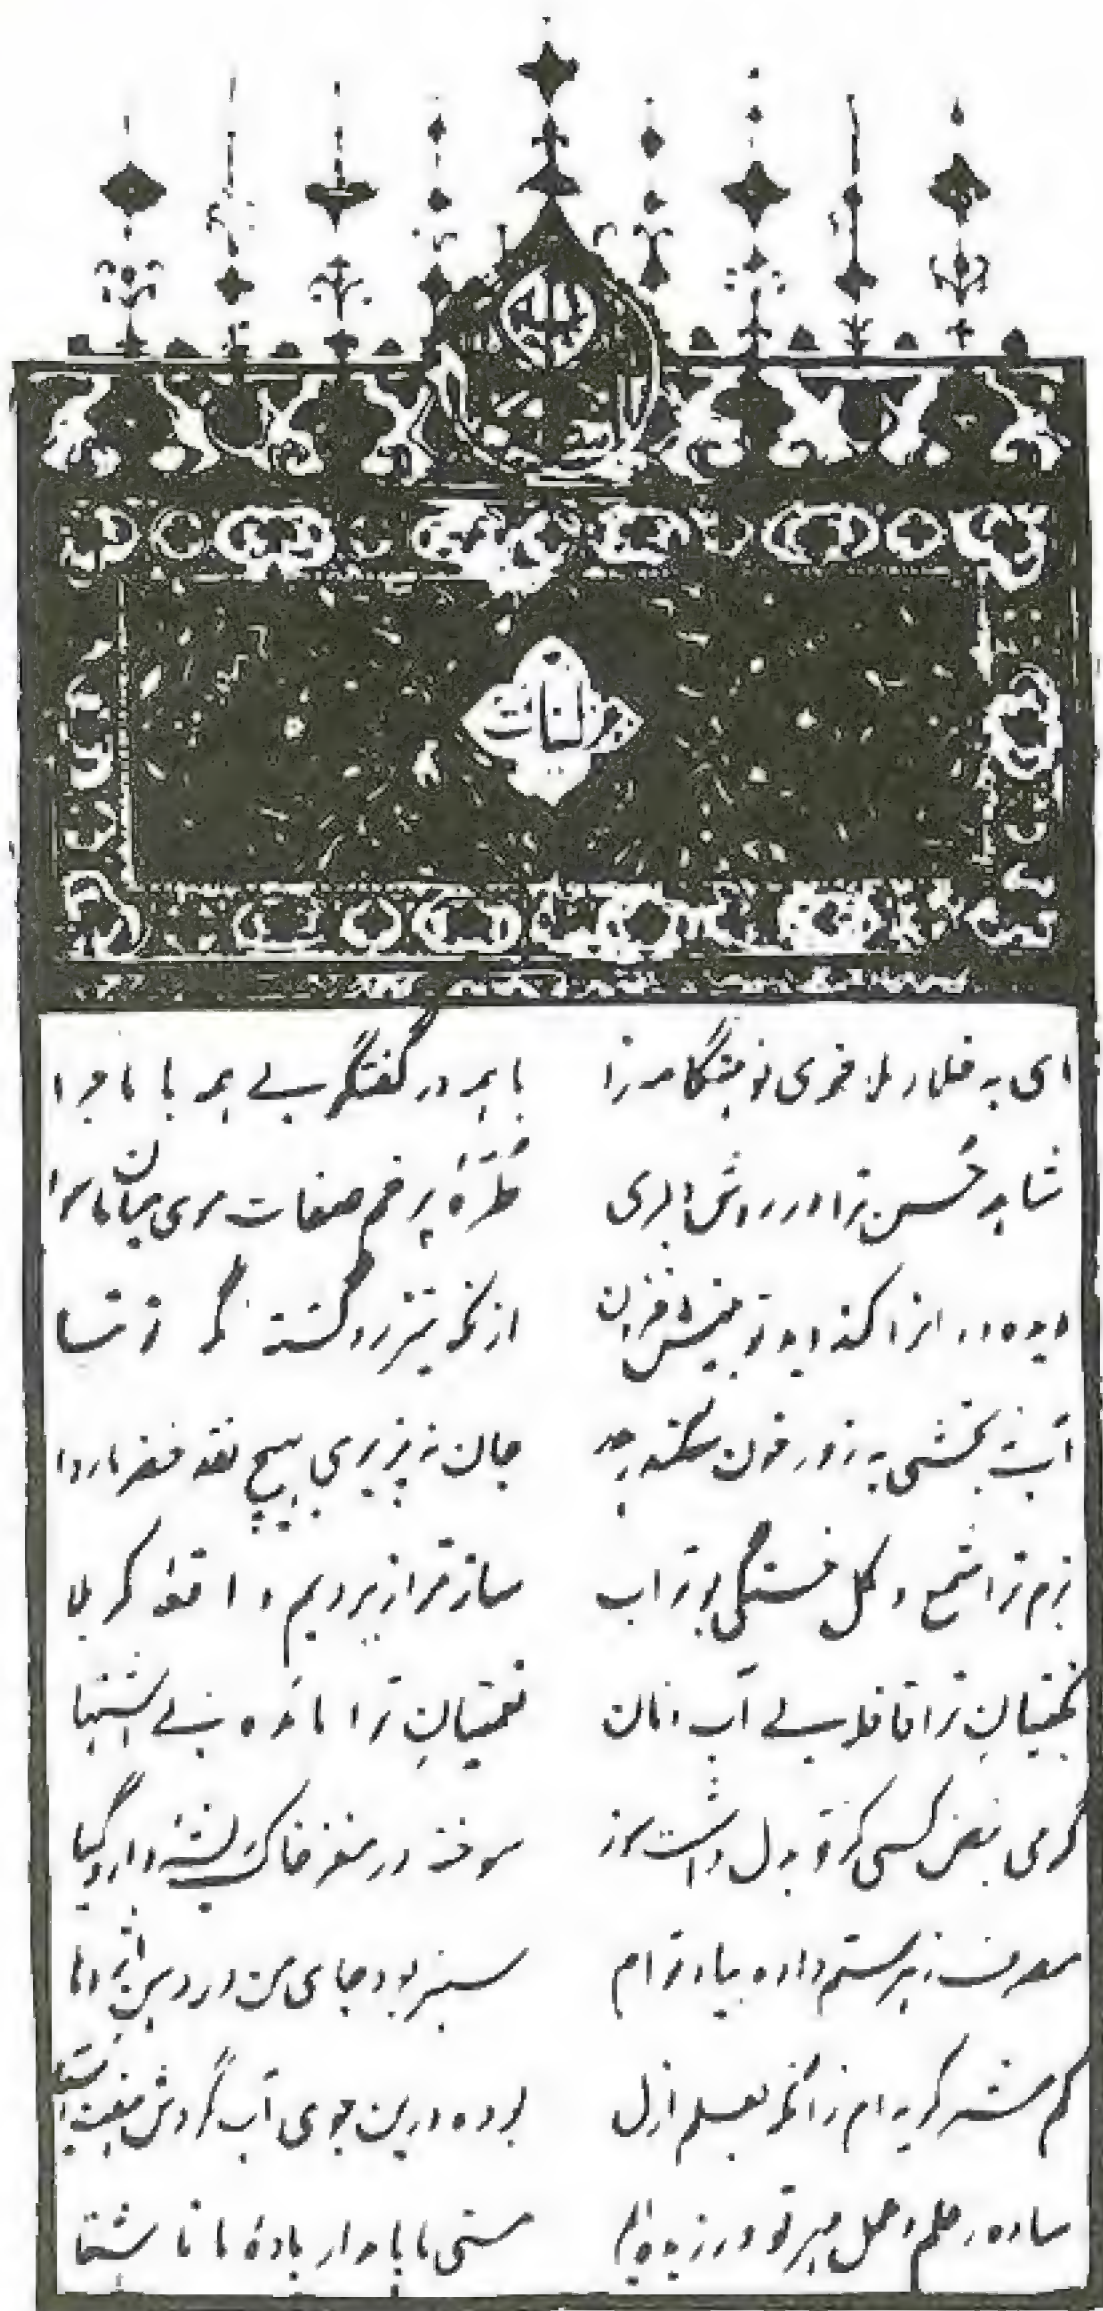 الله
غزلیات
ای به خلا و ملا خوی تو هنگامه زا با همه در گفتگو بے همه با ماجرا
شاهد حُسن ترا در روش دلبری طُرّهٔ پر خم صفات موی میان ماسوا
دیده وران را کند دید تو بینش فزون از نگه تیزرو گشته نگه توتیا
آب نه بخشی به زور خون سکندر هدر جان نه پذیری به هیچ نقد خضر ناروا
بزم ترا شمع و گل خستگی بو تراب ساز ترا زیر و بم واقعهٔ کربلا
نکبتیانِ ترا قافله بے آب و نان نعمتیانِ ترا مائده بے اشتها
گرمی نبض کسی کز تو بدل داشت سوز سوخته در مغز خاک ریشهٔ دارو گیا
مصرف زهر ستم داده بیاد تو ام سبز بود جای من در دهن اژدها
کم مشمر گریه ام زانکه بعلم ازل بوده درین جوی آب گردش هفت آسیا
ساده ز علم و عمل مهر تو ورزیده ایم مستی ما پایدار بادهٔ ما ناشتا